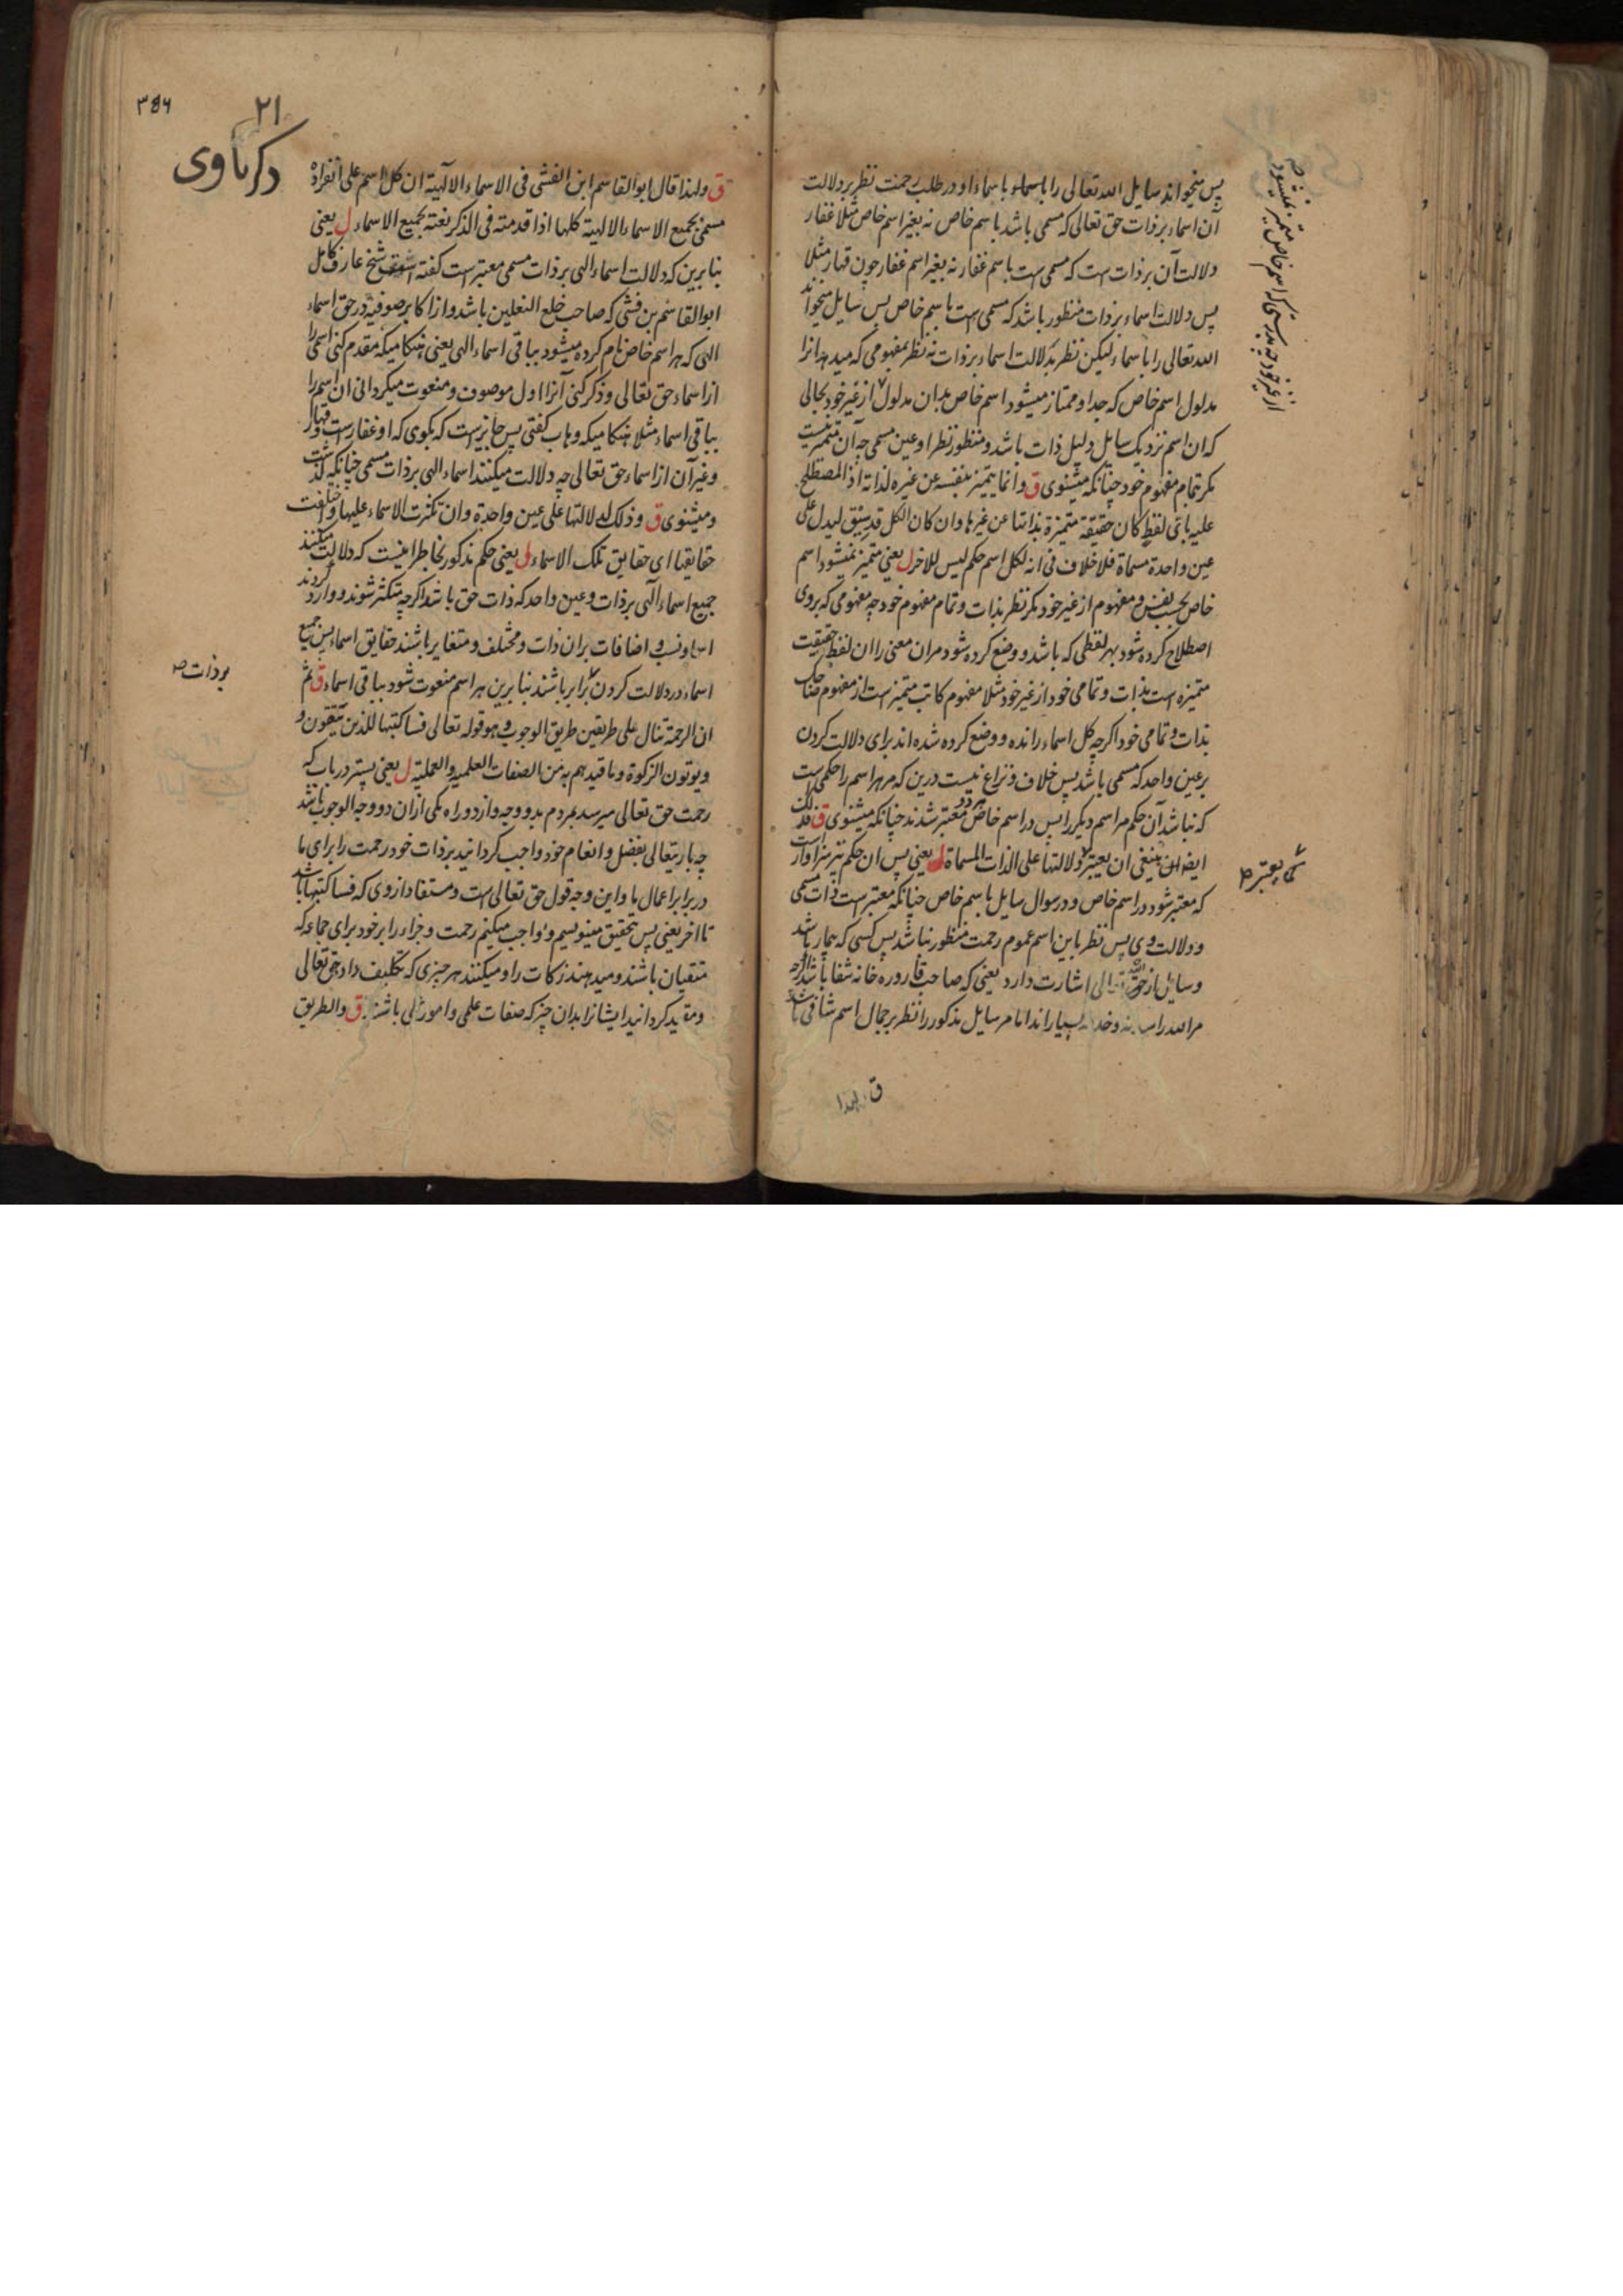 پس میخواند سایل الله تعالی را باسماء او در طلب رحمت نظر بر دلالت
آن اسماء بر ذات حق تعالی که مسمی باشد باسم خاص نه بغیر اسم خاص مثلا غفار
دلالت آن بر ذات است که مسمی است باسم غفار نه بغیر اسم غفار چون قهار مثلا
پس دلالت اسماء بر ذات منظور باشد که مسمی است باسم خاص پس سایل میخواند
الله تعالی را باسماء لیکن نظر بدلالت اسماء بر ذات نه نظر بمفهومی که میدهد انرا
مدلول اسم خاص که جدا و ممتاز میشود اسم خاص بدان مدلول از غیر خود بحالی
که ان اسم نزدیک سایل دلیل ذات باشد و منظور نظر او عین مسمی چه آن متمیز نیست
مکر بتمام مفهوم خود چنانکه میشنوی ق وانما یتمیز بنفسه عن غیره لذاته اذ المصطلح
علیه بای لفظ کان حقیقة متمیزة بذاتها عن غیرها وان کان الکل قد سیق لیدل علی
عین واحدة مسماة فلا خلاف فی انه لکل اسم حکم لیس للاخر ل یعنی متمیز نمیشود اسم
خاص بحسب نفس و مفهوم از غیر خود مکر نظر بذات و تمام مفهوم خود چه مفهومی که بروی
اصطلاح کرده شود بهر لفظی که باشد و وضع کرده شود مران معنی را ان لفظ حقیقت
متمیزه است بذات و تمامی خود از غیر خود مثلا مفهوم کاتب متمیز است از مفهوم ضاحک
بذات و تمامی خود اکرچه کل اسماء رانده و وضع کرده شده اند برای دلالت کردن
بر عین واحد که مسمی باشد پس خلاف و نزاع نیست درین که مر هر اسم را حکمی است
که نباشد آن حکم مر اسم دیکر را پس در اسم خاص هر دو معتبر شدند چنانکه میشنوی ق فذلک
ایضا ینبغی ان یعتبر دلالتها علی الذات المسماة ل یعنی پس ان حکم نیز سزاوار است
که معتبر شود در اسم خاص و در سوال سایل باسم خاص چنانکه معتبر است ذات مسمی
و دلالت وی پس نظر باین اسم عموم رحمت منظور نباشد پس کسی که بیمار باشد
وسایل از حق تعالی اشارت دارد یعنی که صاحب قاروره خانه شفا باشد اکرچه
مر الله را سایل مذکور را نظر بر جمال اسم شافی باشد
متمیز نمیشود
از غیر خود چه بدرستی که اسم خاص
کما یعتبر
ق ولهذا
۳۵۶
۲۱
ذکریاوی
ق ولهذا قال ابوالقاسم ابن القسی فی الاسماء الالهیة ان کل اسم علی انفراده
مسمی بجمیع الاسماء الالهیة کلها اذا قدمته فی الذکر نعته بجمیع الاسماء ل یعنی
بنابرین که دلالت اسماء الهی بر ذات مسمی معتبر است کفته است شیخ عارف کامل
ابوالقاسم بن قشی که صاحب خلع النعلین باشد و از اکابر صوفیه در حق اسماء
الهی که هر اسم خاص نام کرده میشود بباقی اسماء الهی یعنی هنکامیکه مقدم کنی اسمی را
از اسماء حق تعالی و ذکر کنی آنرا اول موصوف و منعوت میکردانی ان اسم را
بباقی اسماء مثلا هنکامیکه وهاب کفتی پس جایز است که بکوی که او غفار است و قهار
و غیر آن از اسماء حق تعالی چه دلالت میکنند اسماء الهی بر ذات مسمی چنانکه کذشت
و میشنوی ق وذلک لدلالتها علی عین واحدة وان تکثرت الاسماء علیها واختلفت
حقایقها ای حقایق تلک الاسماء ل یعنی حکم مذکور بخاطر اینست که دلالت میکنند
جمیع اسماء الهی بر ذات و عین واحد که ذات حق باشد اکرچه متکثر شوند و وارد کردند
اسماء و نسب و اضافات بران ذات و مختلف و متغایر باشند حقایق اسماء پس جمیع
اسماء در دلالت کردن برابر باشند بنابرین هر اسم منعوت شود بباقی اسماء ق ثم
ان الرحمة تنال علی طریقین طریق الوجوب وهو قوله تعالی فساکتبها للذین یتقون و
ویوتون الزکوة وما قیدهم به من الصفات العلمیه والعملیة ل یعنی پستر دریاب که
رحمت حق تعالی میرسد بمردم بدو وجه و از دو راه یکی ازان دو وجه الوجوب باشد
چه باریتعالی بفضل و انعام خود واجب کردانید بر ذات خود رحمت را برای ما
در برابر اعمال ما و این وجه قول حق تعالی است و مستفاد از وی که فساکتبها باشد
تا اخر یعنی پس بتحقیق مینویسم و واجب میکنم رحمت و جزاء را بر خود برای جماعه که
متقیان باشند و میدهند زکات را و میکنند هر چیزی که تکلیف داد حق تعالی
و مقید کردانید ایشانرا بدان چیز که صفات علمی و امور عملی باشند ق والطریق
بر ذات